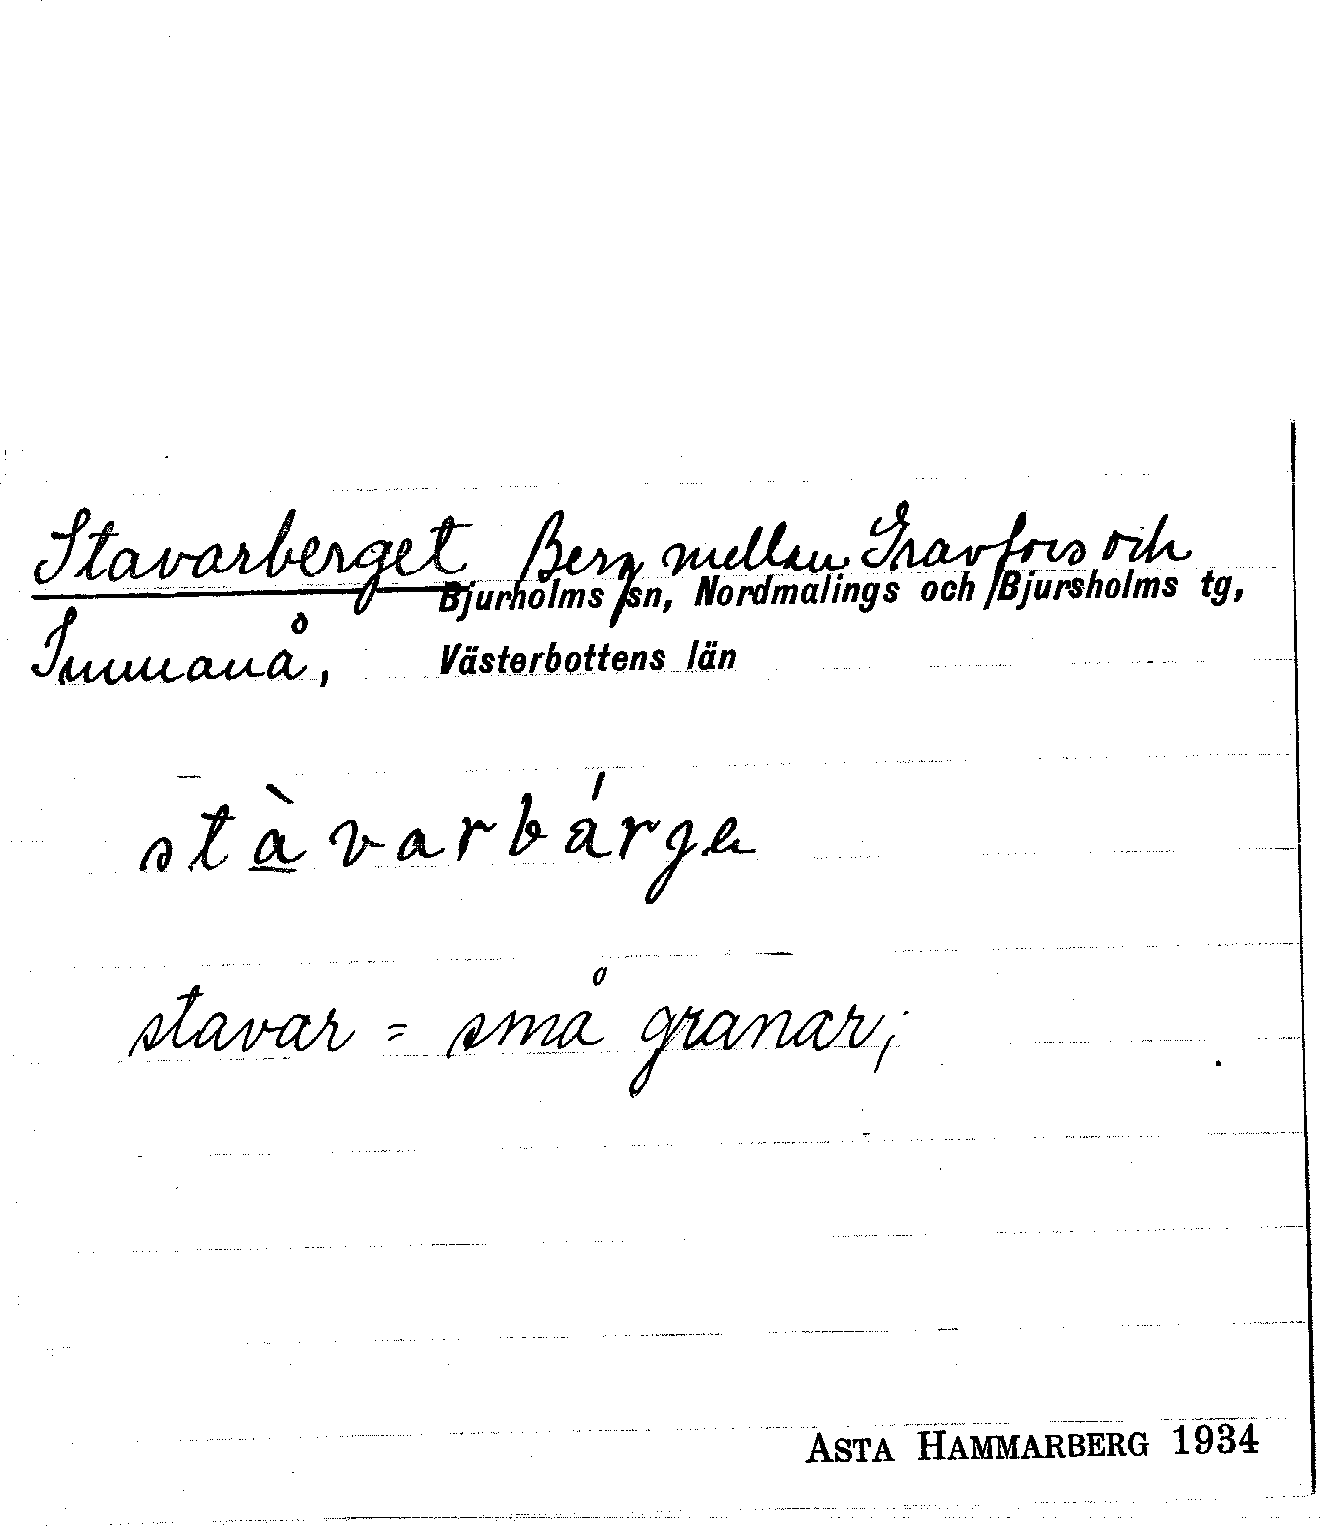 Stavarberget Berg mellan Gravfors och
Bjurholms sn, Nordmalings och Bjursholms tg,
Immanå, Västerbottens län
stàvarbárge
stavar = små granar;
ASTA HAMMARBERG 1934